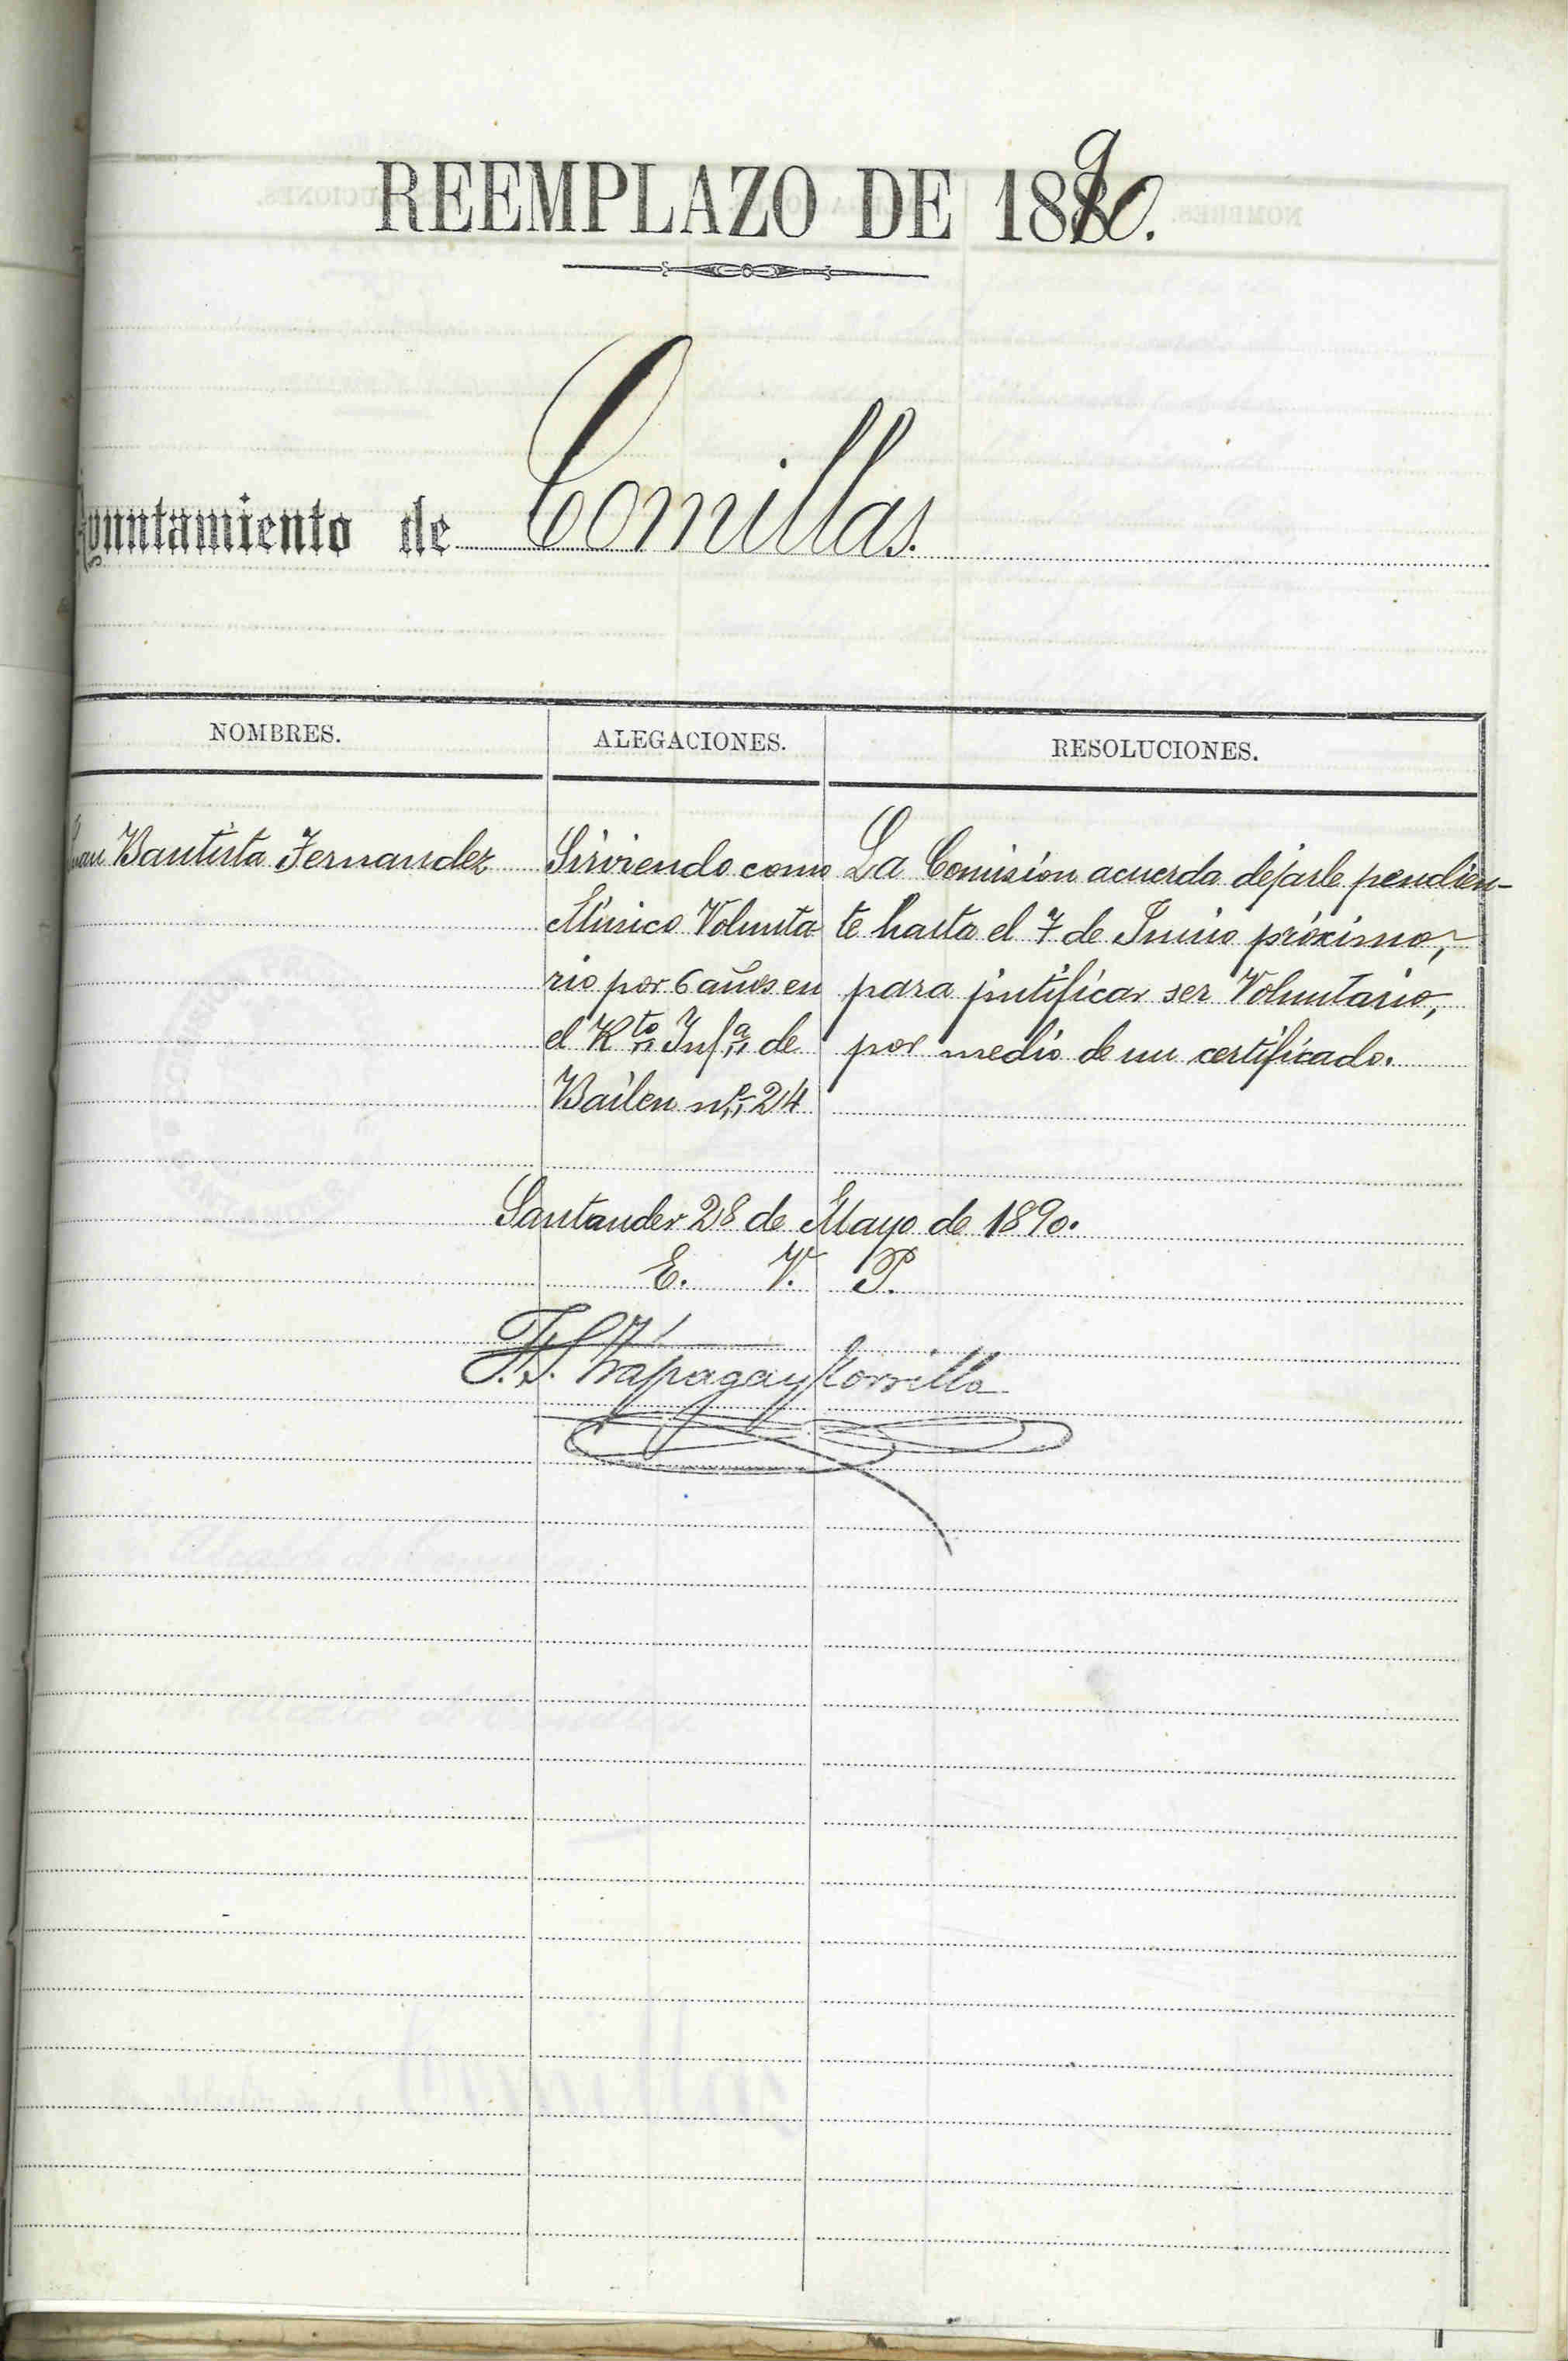 REEMPLAZO DE 1890.
Ayuntamiento de Comillas.
NOMBRES. ALEGACIONES. RESOLUCIONES.
Juan Bautista Fernandez Sirviendo como La Comisión acuerda dejarle pendien-
Músico Volunta- te hasta el 7 de Junio próximo,
rio por 6 años en para justificar ser Voluntario,
el Rto Infa de por medio de un certificado.
Bailen no 24
Santander 28 de Mayo de 1890.
E. V. P.